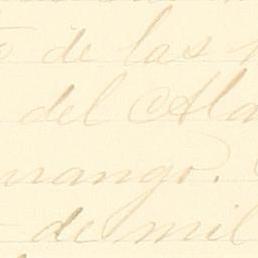 de las
del Ala
urango.
de mil